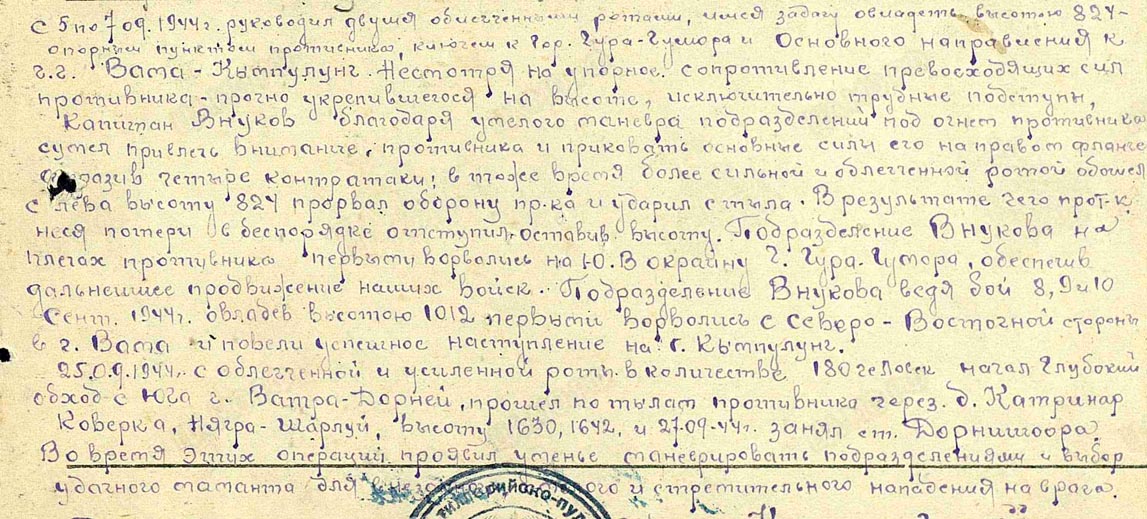 С 5 по 7 09.1944г. руководил двумя облегченными ротами, имея задачу овладеть высотою 824-
опорным пунктом противника, ключем к гор. Гура-Гумора и Основного направления к
г.г. Вама-Кымпулунг. Несмотря на упорное сопротивление превосходящих сил
противника-прочно укрепившегося на высоте, исключительно трудные подступы,
Капитан Внуков благодаря умелого маневра подразделений под огнем противника
сумел привлечь внимание, противника и приковать основные силы его на правом фланге
отразив четыре контратаки; в тоже время более сильной и облегченной ротой обошел
с лева высоту 824 прорвал оборону пр-ка и ударил с тыла. В результате чего прот-к
неся потери в беспорядке отступил, оставив высоту. Подразделение Внукова на
плечах противника первыми ворвались на Ю.В окраину г. Гура. Гумора, обеспечив
дальнейшее продвижение наших войск. Подразделение Внукова ведя бой 8, 9 и 10
Сент. 1944г. овладев высотою 1012 первыми ворвались с Северо-Восточной стороны
в г. Вама и повели успешное наступление на г. Кымпулунг.
25.09.1944г. с облегченной и усиленной роты в количестве 180 человек начал глубокий
обход с Юга г. Ватра-Дорней, прошел по тылам противника через д. Катринар
Коверка, Нягра-Шарлуй, высоту 1630, 1642, и 27-09-44г. занял ст. Дорнишоора
Во время этих операций проявил уменье маневрировать подразделениями и выбор
удачного мамента для и стремительного нападения на врага.